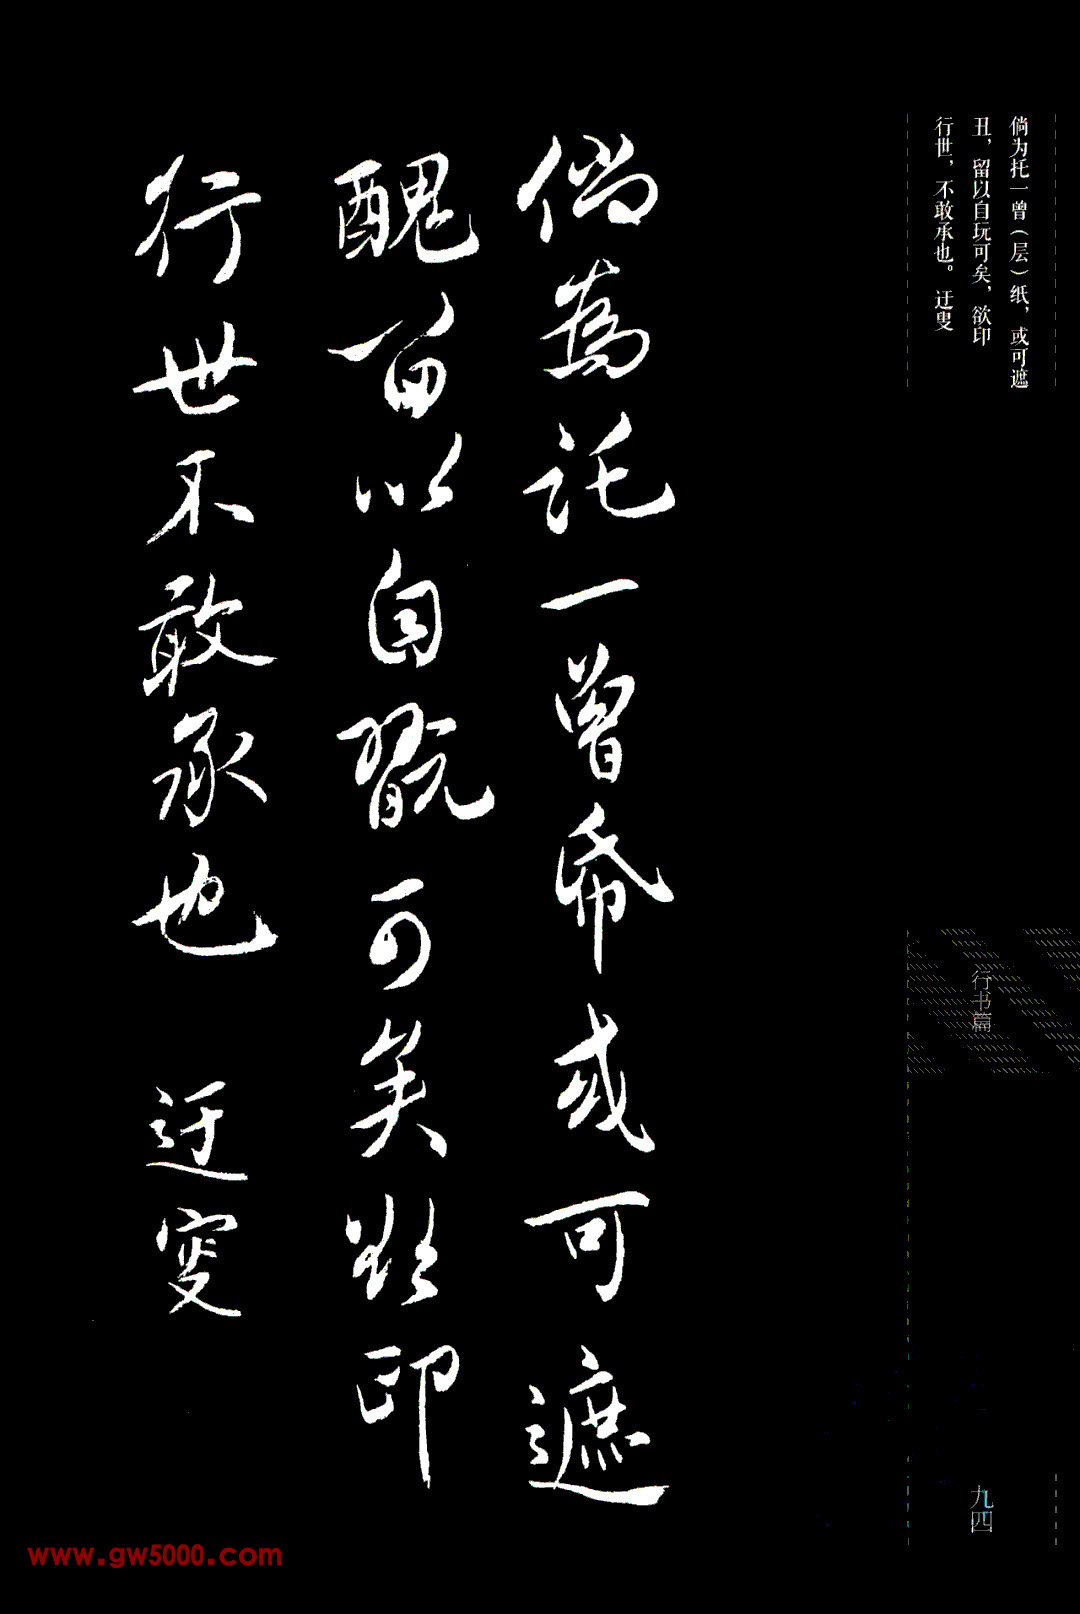 倘为托一曾(层)纸，或可遮
丑，留以自玩可矣，欲印
行世，不敢承也。 迂叟
倘為託一曾帋或可遮
醜畱以自翫可矣欲印
行世不敢承也 迂叟
行书篇
九四
www.gw5000.com